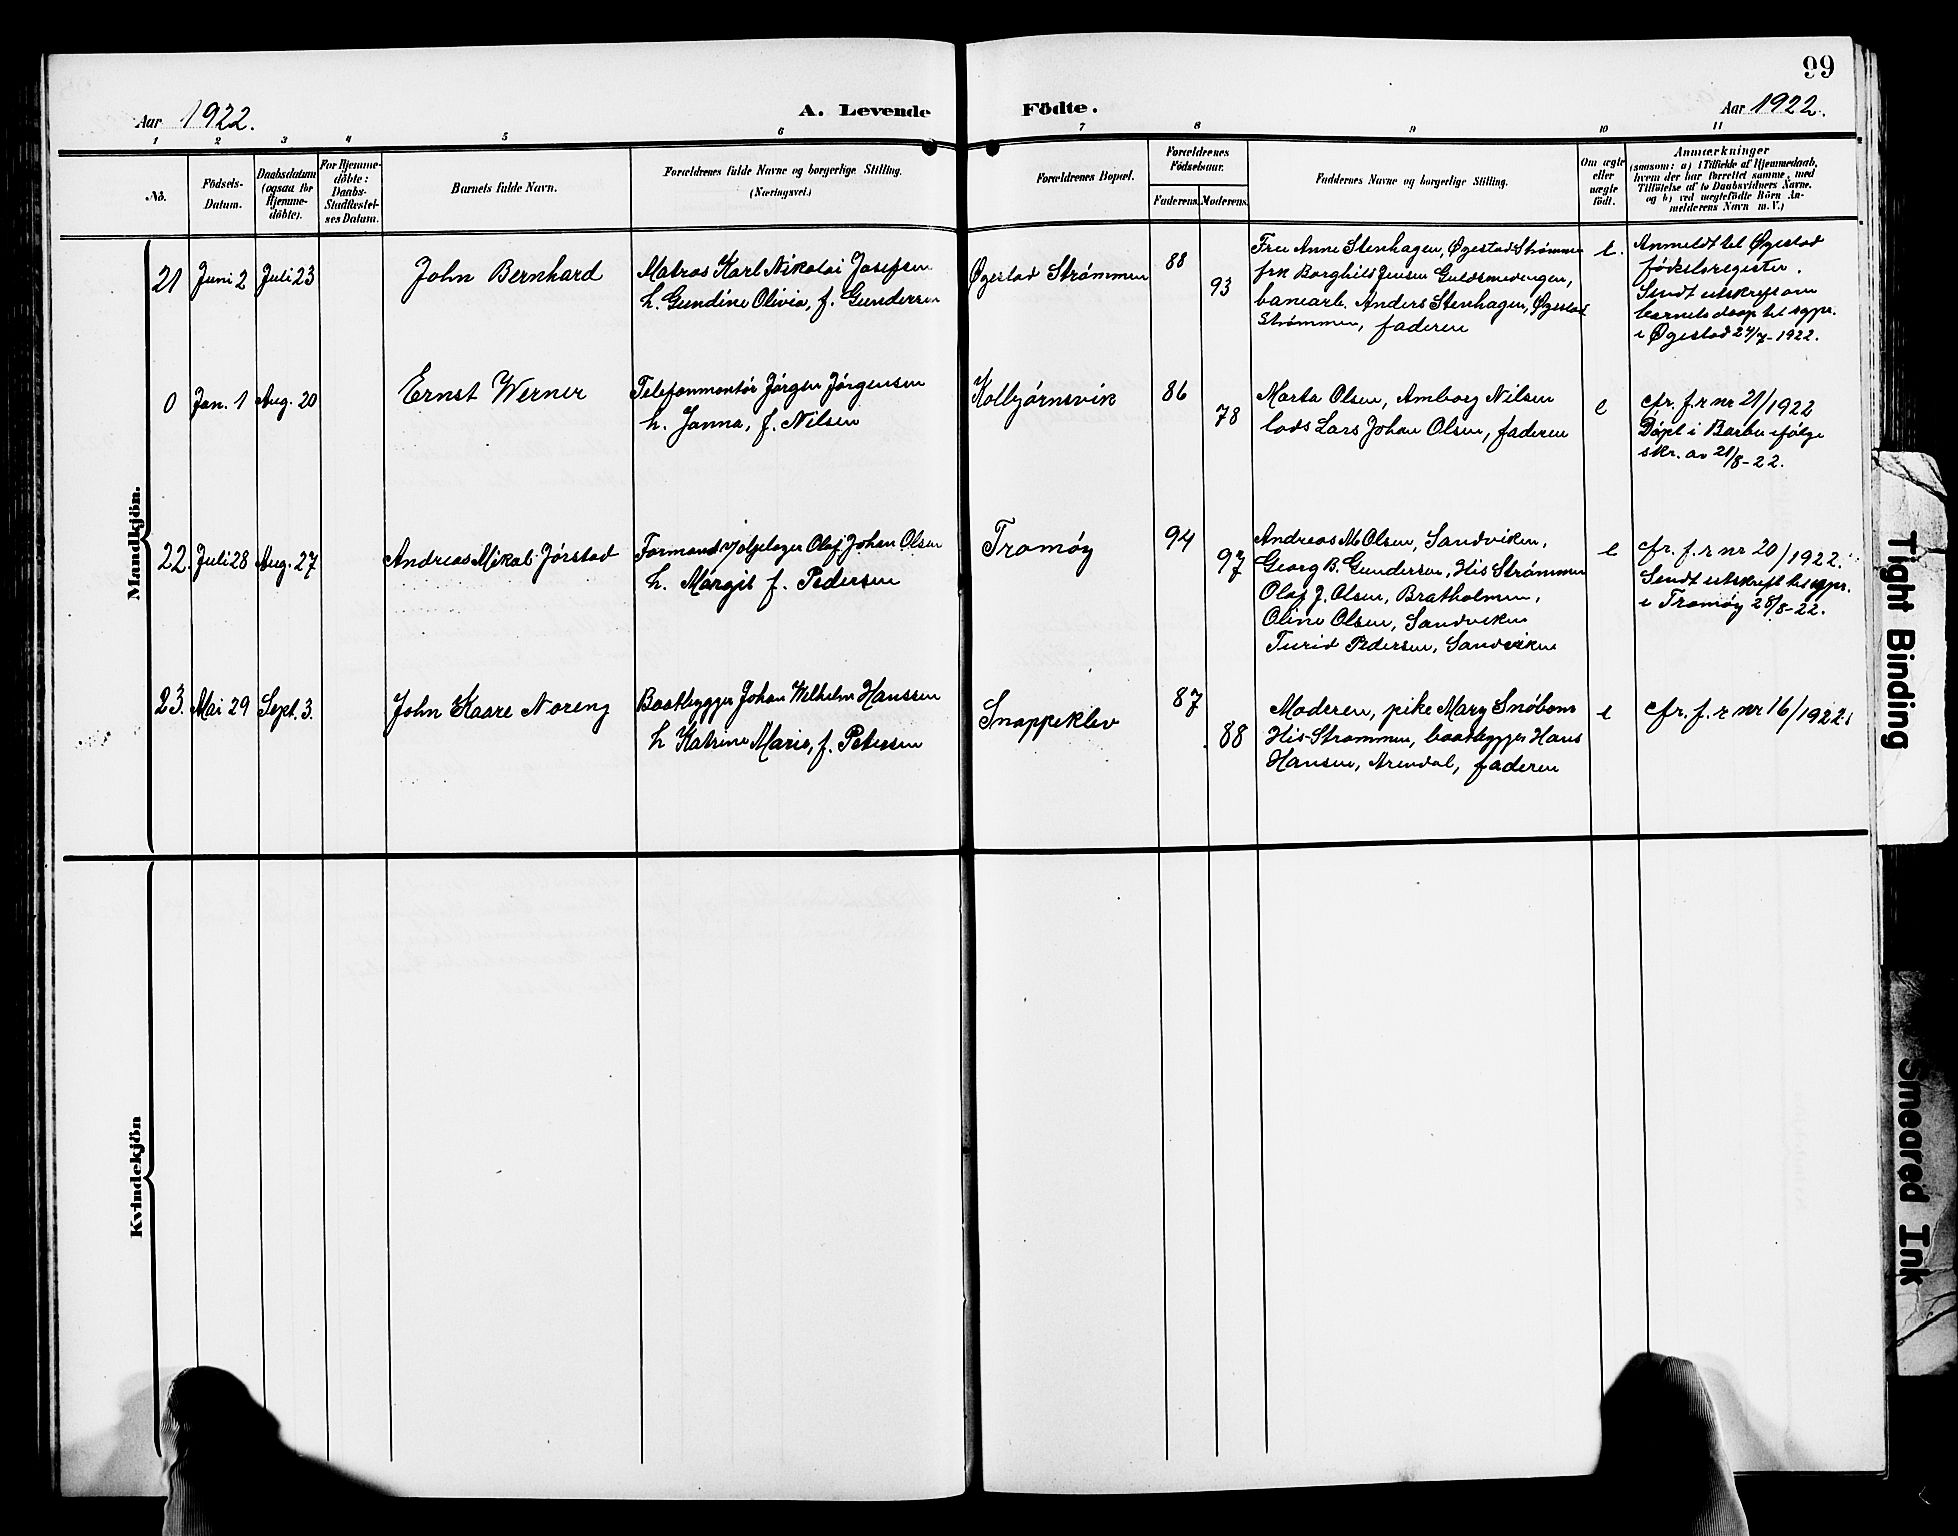 99
Aar 1922.
A. Levende Födte.
Aar 1922.
1 2 3 4 5 6 7 8 9 10 11
No.
Födsels-
Datum.
Daabsdatum
(ogsaa for
Hjemme-
döbte).
For Hjemme-
döbte:
Daabs-
Stadfæstel-
ses Datum.
Barnets fulde Navn.
Forældrenes fulde Navne og borgerlige Stilling.
(Næringsvei.)
Forældrenes Bopæl.
Forældrenes
Födselsaar.
Faderens. Moderens.
Faddernes Navne og borgerlige Stilling.
Om ægte
eller
uægte
födt.
Anmærkninger
(saasom: a) i Tilfælde af Hjemmedaab,
hvem der har forrettet samme, med
Tilföielse af to Daabsvidners Navne.
og b) ved uægtefödte Börn An-
melderens Navn m. V.)
Mandkjön.
21 Juni 2 Juli 23
John Bernhard
Matros Karl Nikolai Josefsen
h. Gundine Olivia, f. Gundersen
Øyestad Strømmen
88
93
Fru Anne Stenhagen, Øyestad Strømmen
frk Borghild Jensen Guldsmedengen,
banearb. Anders Stenhagen, Øyestad
Strømmen, faderen
e.
Anmeldt til Øyestad
fødselsregister.
Sendt utskrift om
barnets daap til sgpr.
i Øyestad 24/7-1922.
0 Jan. 1 Aug. 20
Ernst Werner
Telefonmontør Jørgen Jørgensen
h. Janna, f. Nilsen
Kolbjørnsvik
86
78
Marta Olsen, Amborg Nilsen
lods Lars Johan Olsen, faderen
e
cfr. f. r nr 21/1922
Døpt i Barbu ifølge
skr. av 21/8-22.
22. Juli 28 Aug. 27
Andreas Mikal Jørstad
Formand v/oljelager Olaf Johan Olsen
h. Margit f. Pedersen
Tromøy
94
97
Andreas M. Olsen, Sandviken,
Georg B. Gundersen, His Strømmen
Olaf J. Olsen, Bratholmen,
Oline Olsen, Sandviken
Turid Pedersen, Sandviken
e
cfr. f. r nr 20/1922.
Sendt utskrift til sgpr.
i Tromøy 28/8-22.
23. Mai 29 Sept. 3.
John Kaare Noreng
Baatbygger Johan Wilhelm Hanssen
h Katrine Marie, f. Petersen
Snappeklev
87
88
Moderen, pike Mary Snøbom
His-Strømmen, baatbygger Hans
Hansen, Arendal, faderen
e
cfr. f. r nr 16/1922.
Kvindekjön
Tight Binding
Smeared Ink